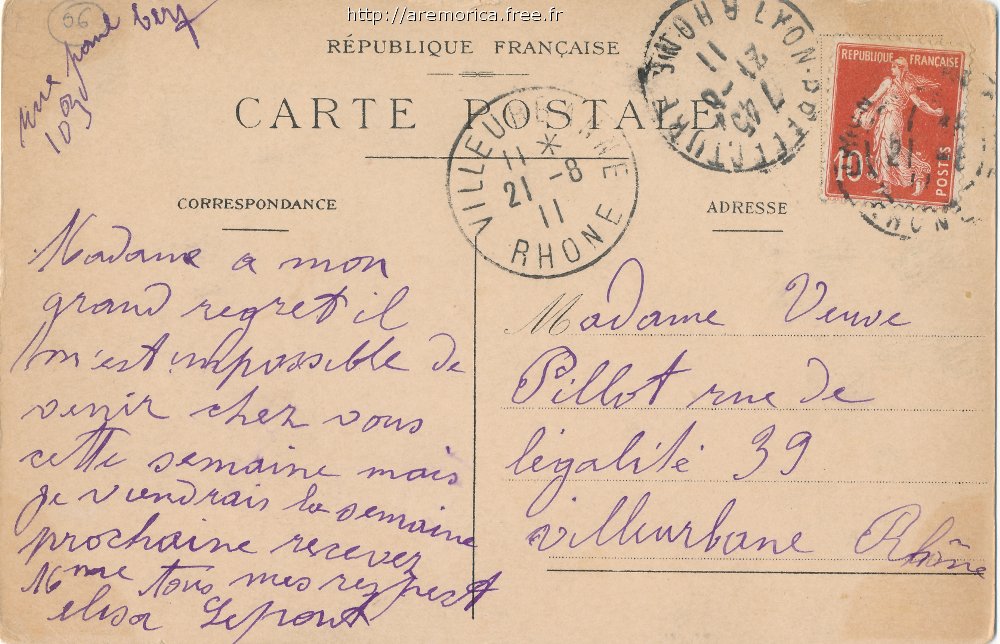 http://aremorica.free.fr
06
rue paul bert
103
RÉPUBLIQUE FRANÇAISE
CARTE POSTALE
CORRESPONDANCE
ADRESSE
VILLEURBANNE
11 *
21 -8
11
RHONE
LYON-PRÉFECTURE RHONE
7 45
21 -8
11
REPUBLIQUE FRANÇAISE
10
POSTES
Madame a mon
grand regret il
m'est impossible de
venir chez vous
cette semaine mais
je viendrais la semaine
prochaine recevez
Mme tous mes respest
elisa Lepont
Madame Veuve
Pillot rue de
légalité 39
villeurbane Rhône